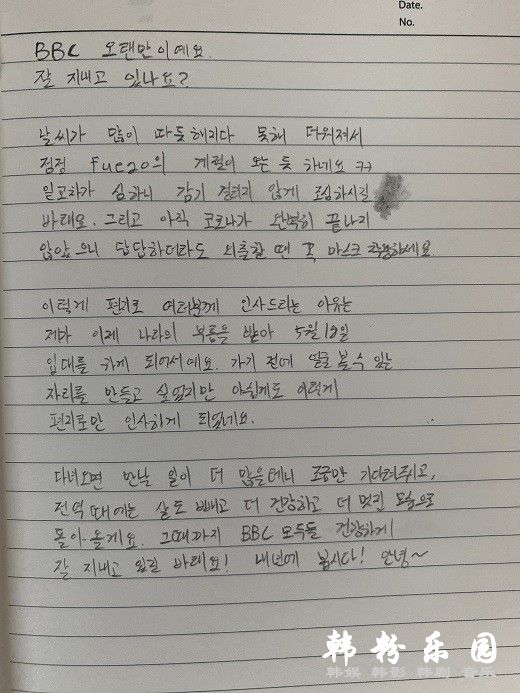 Date.
No.
BBC 오랜만이예요.
잘 지내고 있나요?
날씨가 많이 따듯해지다 못해 더워져서
점점 Fuego의 계절이 오는 듯 하네요 ㅋㅋ
일교차가 심하니 감기 걸리지 않게 조심하시길
바래요. 그리고 아직 코로나가 완벽히 끝나지
않았으니 답답하더라도 외출할 땐 꼭 마스크 착용하세요.
이렇게 편지로 여러분께 인사드리는 이유는
제가 이제 나라의 부름을 받아 5월 12일
입대를 하게 되어서예요. 가기 전에 얼굴 볼 수 있는
자리를 만들고 싶었지만 아쉽게도 이렇게
편지로만 인사하게 되었네요.
다녀오면 만날 일이 더 많을테니 조금만 기다려주고,
전역 때에는 살도 빼고 더 건강하고 더 멋진 모습으로
돌아올게요. 그때까지 BBC 모두들 건강하게
잘 지내고 있길 바래요! 내년에 봅시다! 안녕~
韩粉乐园
韩娱 韩影 韩剧 音乐